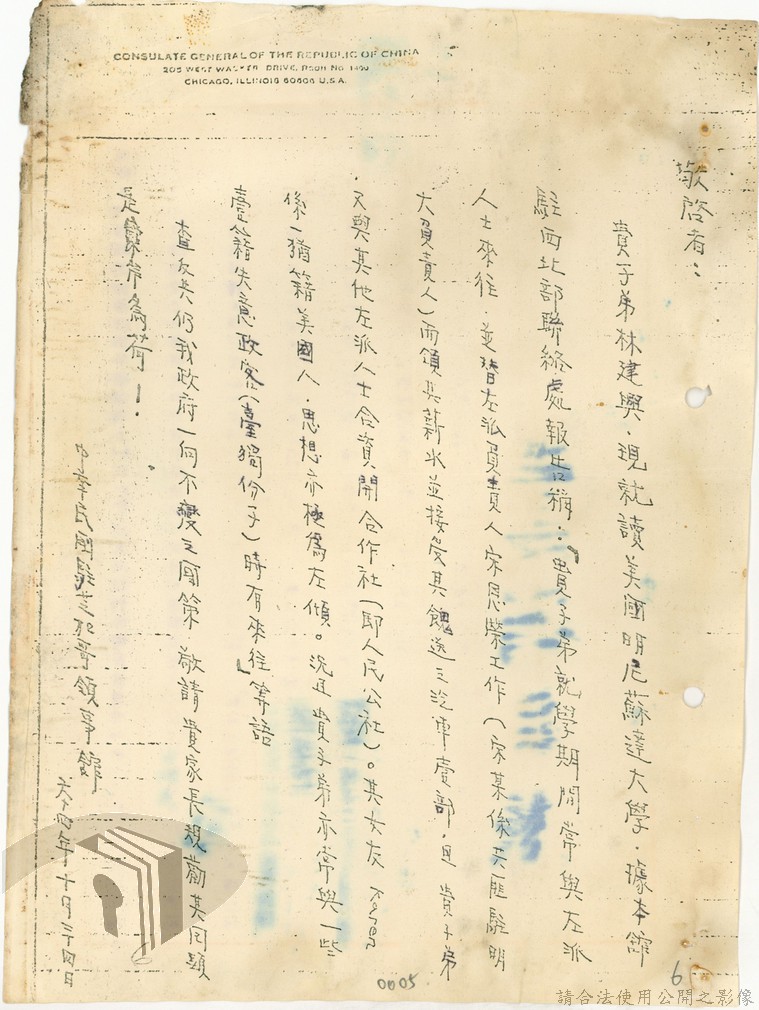 CONSULATE GENERAL OF THE REPUBLIC OF CHINA
205 WEST WACKER DRIVE, ROOM No.
CHICAGO, ILLINOIS 60606 U.S.A.
敬啓者：
貴子弟林建興．現就讀美國明尼蘇達大學．據本館
駐西北部聯絡處報告稱：「貴子弟就學期間常與左派
人士來往．並替左派負責人宋恩榮工作（宋某係共匪駐明
大負責人）而領其薪水並接受其餽送之汽車壹部．且貴子弟
又與其他左派人士合資開合作社（即人民公社）。其女友
係一猶籍美國人．思想亦極為左傾。況且貴子弟亦常與一些
臺籍失意政客（臺獨份子）時有來往」等語
查反共仍我政府一向不變之國策 敬請貴家長規勸其回頭
是岸為荷！
中華民國駐芝加哥領事館
六十四年十月二十四日
0005
6
請合法使用公開之影像